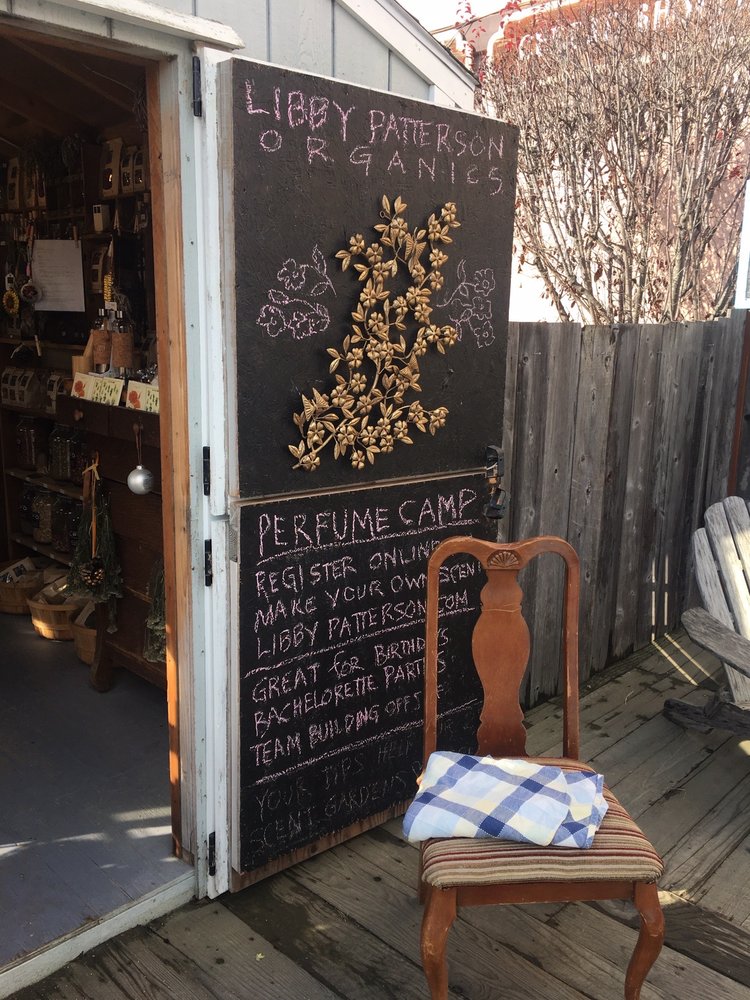 LIBBY PATTERSON
ORGANICS
PERFUME CAMP
REGISTER ONLINE
MAKE YOUR OWN SCENT
LIBBY PATTERSON.COM
GREAT FOR BIRTHDAYS
BACHELORETTE PARTIES
TEAM BUILDING
YOUR TIPS HELP
SCENT GARDENS